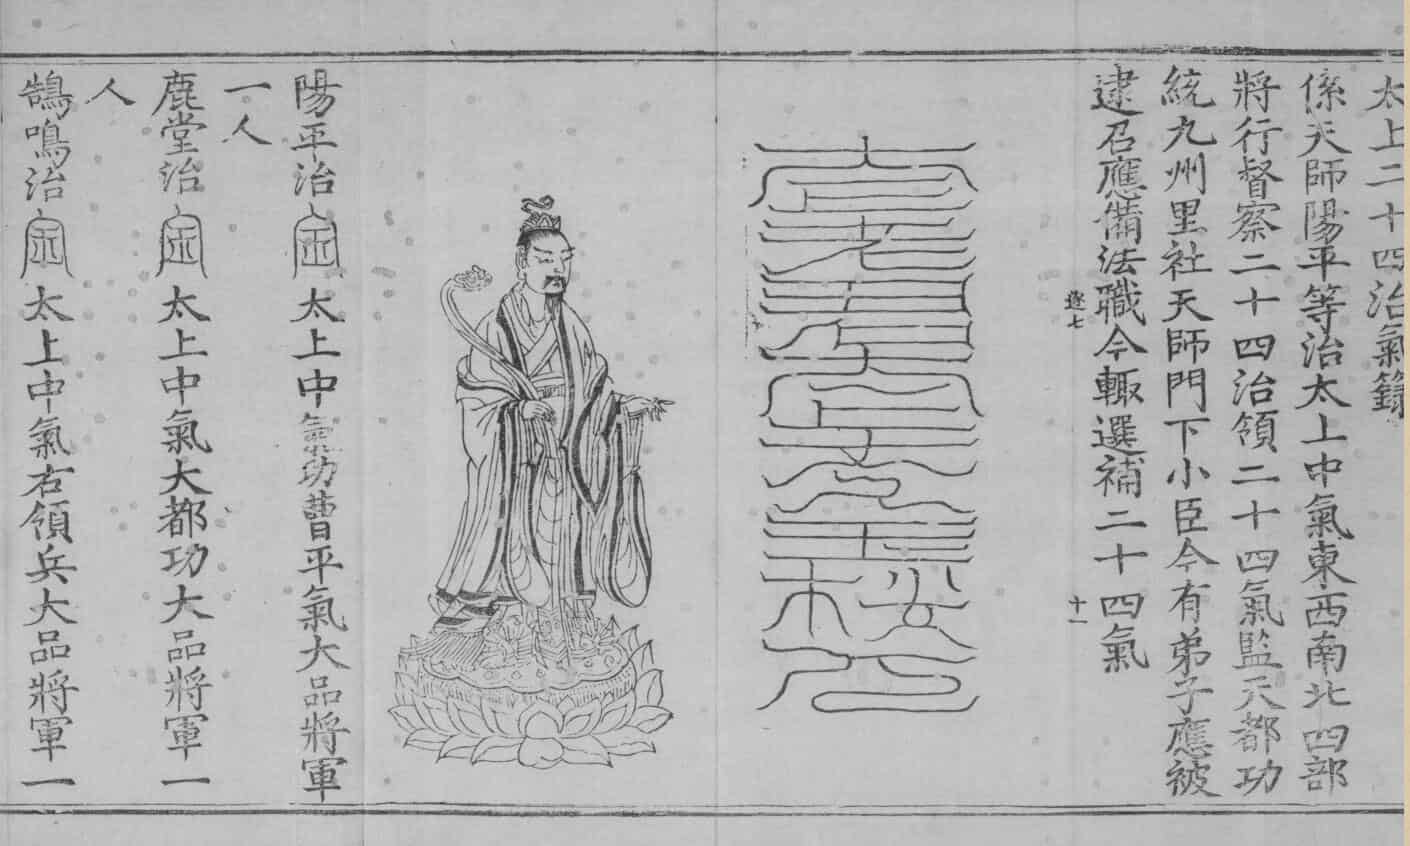 太上二十四治氣籙
係天師陽平等治太上中氣東西南北四部
將行督察二十四治領二十四氣監天都功
統九州里社天師門下小臣今有弟子應被
逮召應備法職今輙選補二十四氣
遂七
十一
陽平治
太上中氣功曹平氣大品將軍
一人
鹿堂治
太上中氣大都功大品將軍一
人
鵠鳴治
太上中氣右領兵大品將軍一